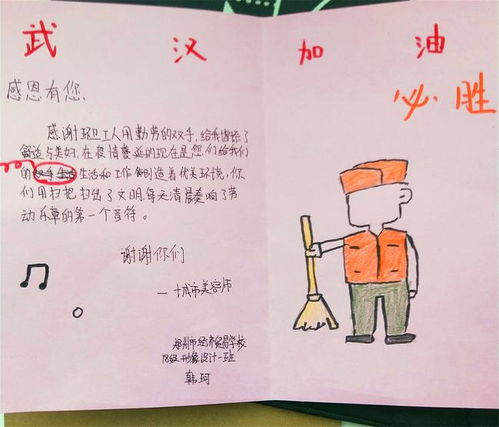 武汉加油
必胜
感恩有您,
感谢环卫工人用勤劳的双手,给我们增添了
舒适与美妙,在疫情蔓延的现在是您们给我们
的生活和工作创造着优美环境,你
们用扫把扫出了文明每天清晨奏响了劳
动乐章的第一个音符。
谢谢你们
—城市美容师
郑州市经济贸易学校
18级形象设计一班
韩珂